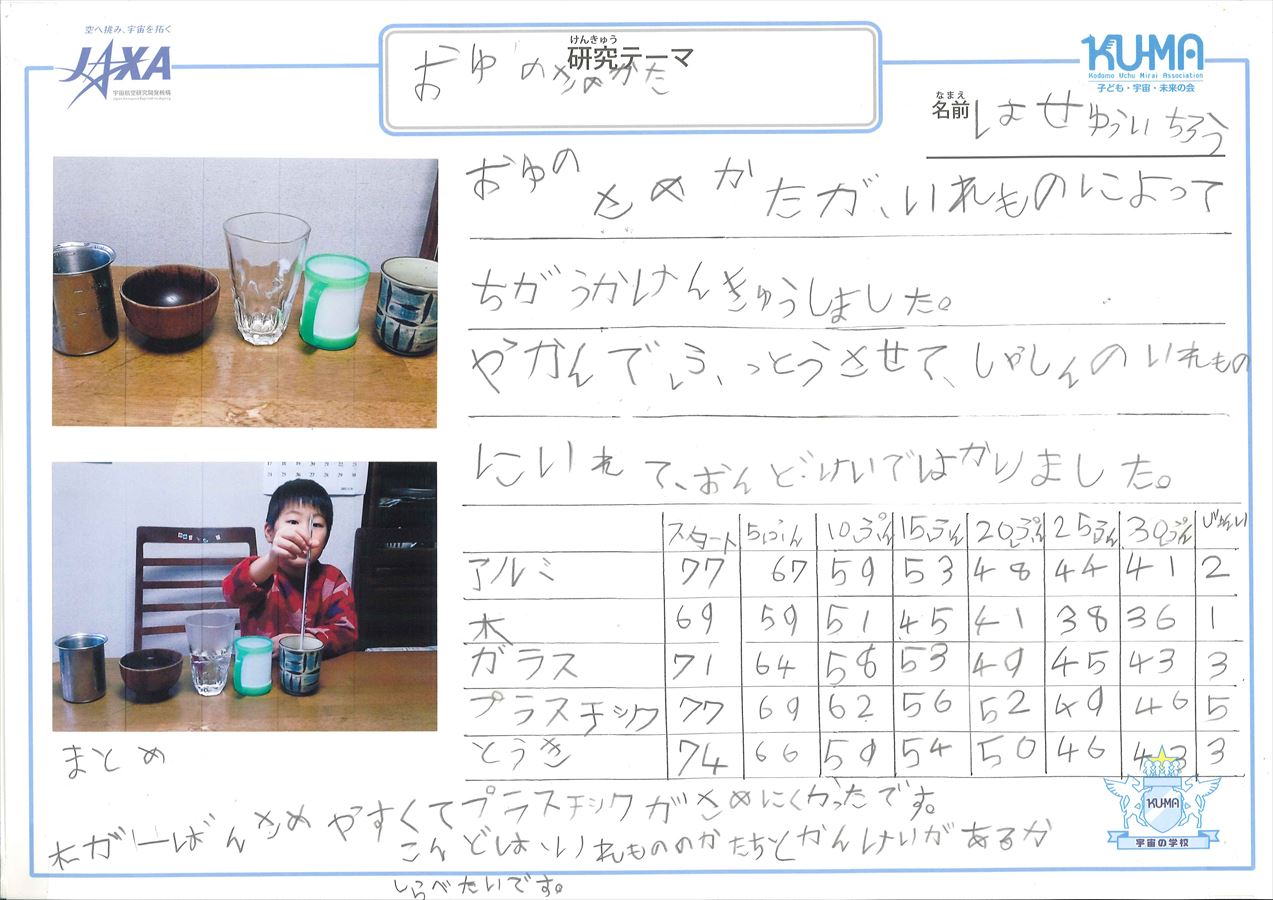 空へ挑み、宇宙を拓く
JAXA
宇宙航空研究開発機構
けんきゅう
研究テーマ
おゆのさめかた
KU-MA
Kodomo Uchu Mirai Association
子ども・宇宙・未来の会
なまえ
名前 はせゆういちろう
おゆのさめかたが、いれものによって
ちがうかけんきゅうしました。
やかんでふっとうさせて、しゃしんのいれもの
にいれて、おんどけいではかりました。
スタート 5ふん 10ぷん 15ふん 20ぷん 25ふん 30ぷん じゅんい
アルミ 77 67 59 53 48 44 41 2
木 69 59 51 45 41 38 36 1
ガラス 71 64 58 53 49 45 43 3
プラスチック 77 69 62 56 52 49 46 5
とうき 74 66 59 54 50 46 43 3
まとめ
木が一ばんさめやすくてプラスチックがさめにくかったです。
こんどは、いれもののかたちとかんけいがあるか
しらべたいです。
KU-MA
宇宙の学校